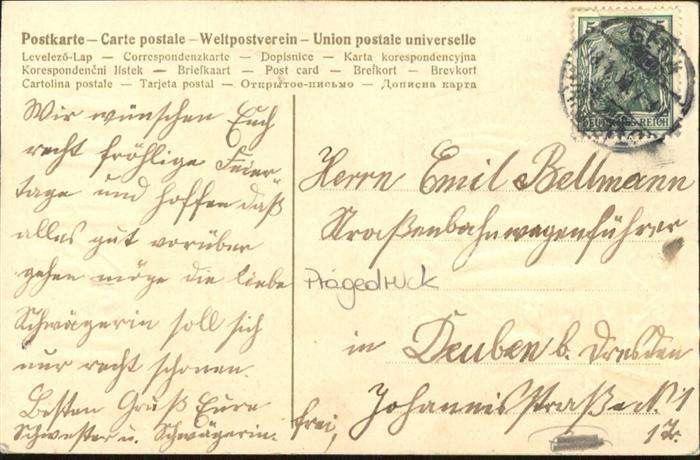 Postkarte – Carte postale – Weltpostverein – Union postale universelle
Levelező-Lap — Correspondenzkarte — Dopisnice — Karta korespondencyjna
Korespondenční lístek — Briefkaart — Post card — Brefkort — Brevkort
Cartolina postale — Tarjeta postal — Открытое-письмо — Дописна карта
Wir wünschen Euch
recht fröhlige Feier-
tage und hoffen daß
alles gut vorüber
gehen möge die liebe
Schwägerin soll sich
nur recht schonen.
Besten Gruß Eure
Schwester u. Schwägerin.
5 5
DEUTSCHES REICH
Herrn Emil Bellmann
Straßenbahnwagenführer
Prägedruck
in Deuben b. Dresden
Johannisstraße
frei,